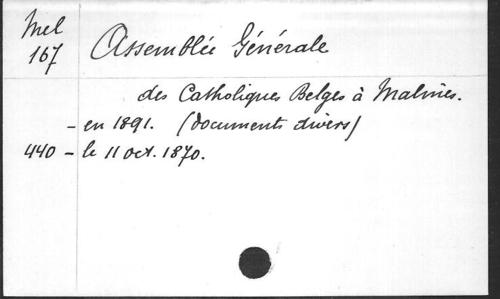 Mel
167 Assemblée Générale
des Catholiques Belges à Malines.
- en 1891. (documents divers)
440 - le 11 oct. 1870.